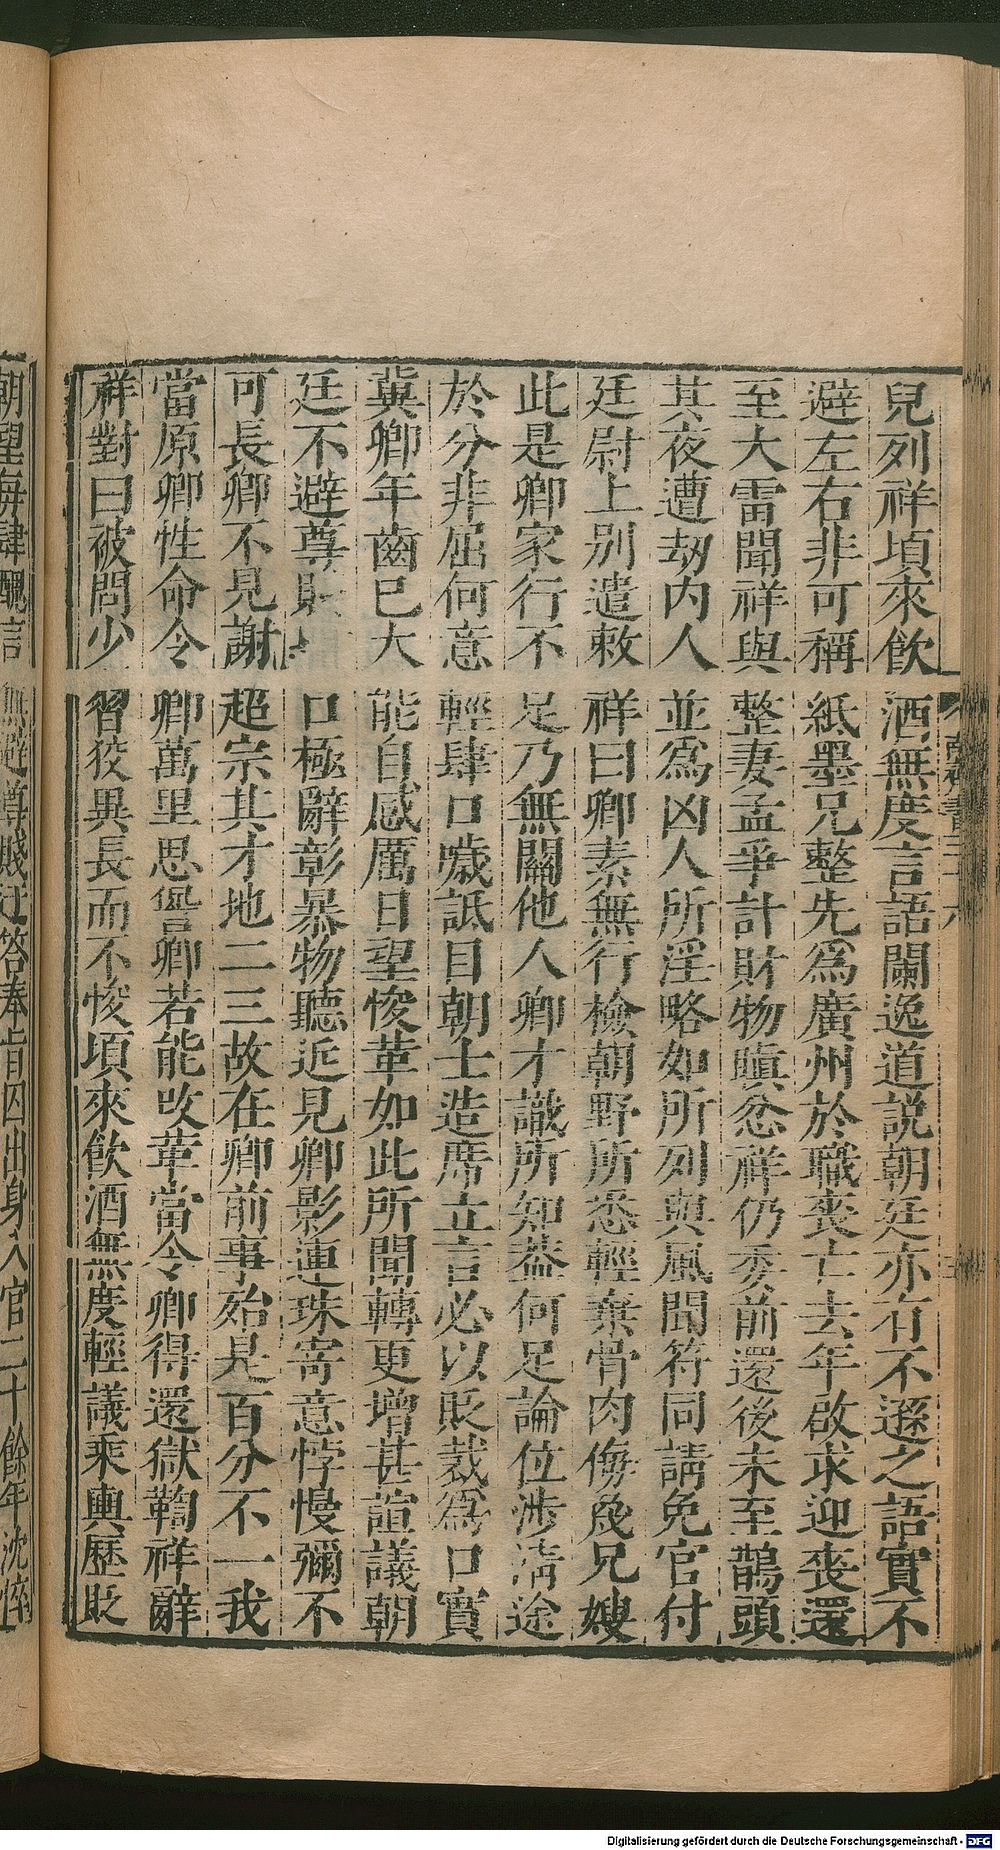 兒列祥頃來飲酒無度言語闌逸道說朝廷亦有不遜之語實不
避左右非可稱紙墨兄整先爲廣州於職喪亡去年啟求迎喪還
至大雷聞祥與整妻孟爭計財物瞋忿祥仍委前還後未至鵲頭
其夜遭劫内人並爲凶人所淫略如所列與風聞符同請免官付
廷尉上別遣敕祥曰卿素無行檢朝野所悉輕棄骨肉侮蔑兄嫂
此是卿家行不足乃無關他人卿才識所知蓋何足論位涉淸途
於分非屈何意輕肆口噦詆目朝士造席立言必以貶裁爲口實
冀卿年齒已大能自感厲日望悛革如此所聞轉更增甚諠議朝
廷不避尊口極辭彰暴物聽近見卿影連珠寄意悖慢彌不
可長卿不見謝超宗其才地二三故在卿前事殆是百分不一我
當原卿性命令卿萬里思諐卿若能改革當令卿得還獄鞫祥辭
祥對曰被問少習狡異長而不悛頃來飮酒無度輕議乘輿歷貶
朝望每肆醜言無避尊賤迂答奉旨囚出身入官二十餘年沈悴
南齊書三十六
Digitalisierung gefördert durch die Deutsche Forschungsgemeinschaft - DFG